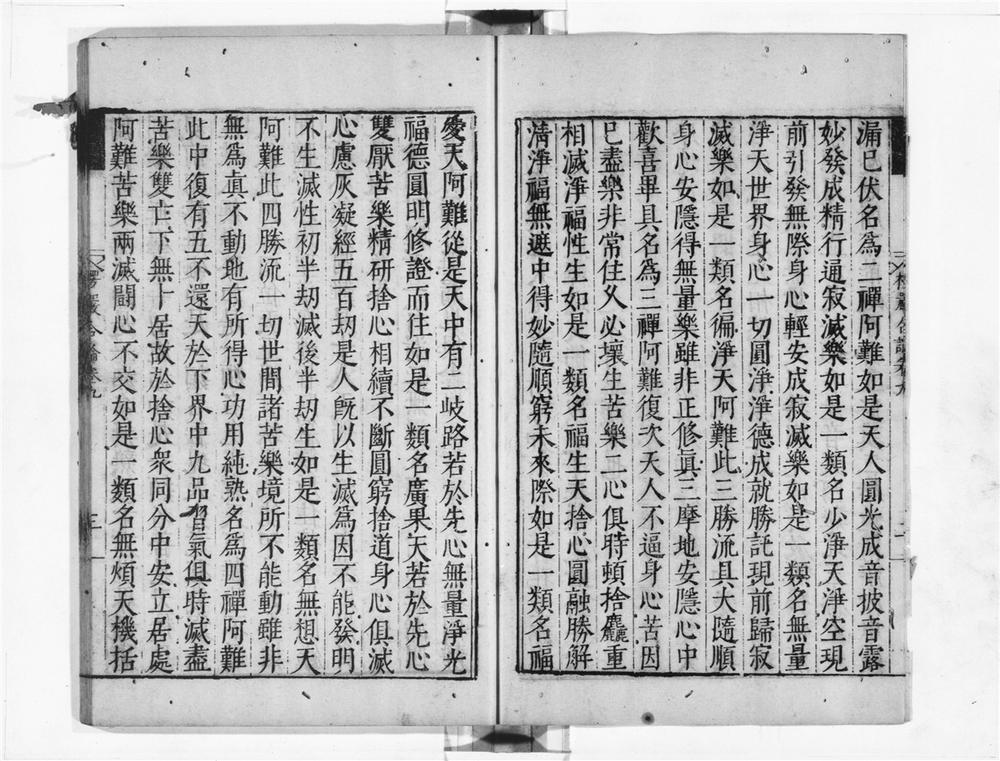 漏已伏名爲二禪阿難如是天人圓光成音披音露
妙發成精行通寂滅樂如是一類名少淨天淨空現
前引發無際身心輕安成寂滅樂如是一類名無量
淨天世界身心一切圓淨淨德成就勝託現前歸寂
滅樂如是一類名徧淨天阿難此三勝流具大隨順
身心安隱得無量樂雖非正修眞三摩地安隱心中
歡喜畢具名爲三禪阿難復次天人不逼身心苦因
已盡樂非常住久必壞生苦樂二心俱時頓捨麤重
相滅淨福性生如是一類名福生天捨心圓融勝解
淸淨福無遮中得妙隨順窮未來際如是一類名福
愛天阿難從是天中有二岐路若於先心無量淨光
福德圓明修證而住如是一類名廣果天若於先心
雙厭苦樂精研捨心相續不斷圓窮捨道身心俱滅
心慮灰凝經五百劫是人旣以生滅爲因不能發明
不生滅性初半劫滅後半劫生如是一類名無想天
阿難此四勝流一切世間諸苦樂境所不能動雖非
無爲眞不動地有所得心功用純熟名爲四禪阿難
此中復有五不還天於下界中九品習氣俱時滅盡
苦樂雙亡下無卜居故於捨心衆同分中安立居處
阿難苦樂兩滅鬪心不交如是一類名無煩天機括
楞嚴合論卷九
三